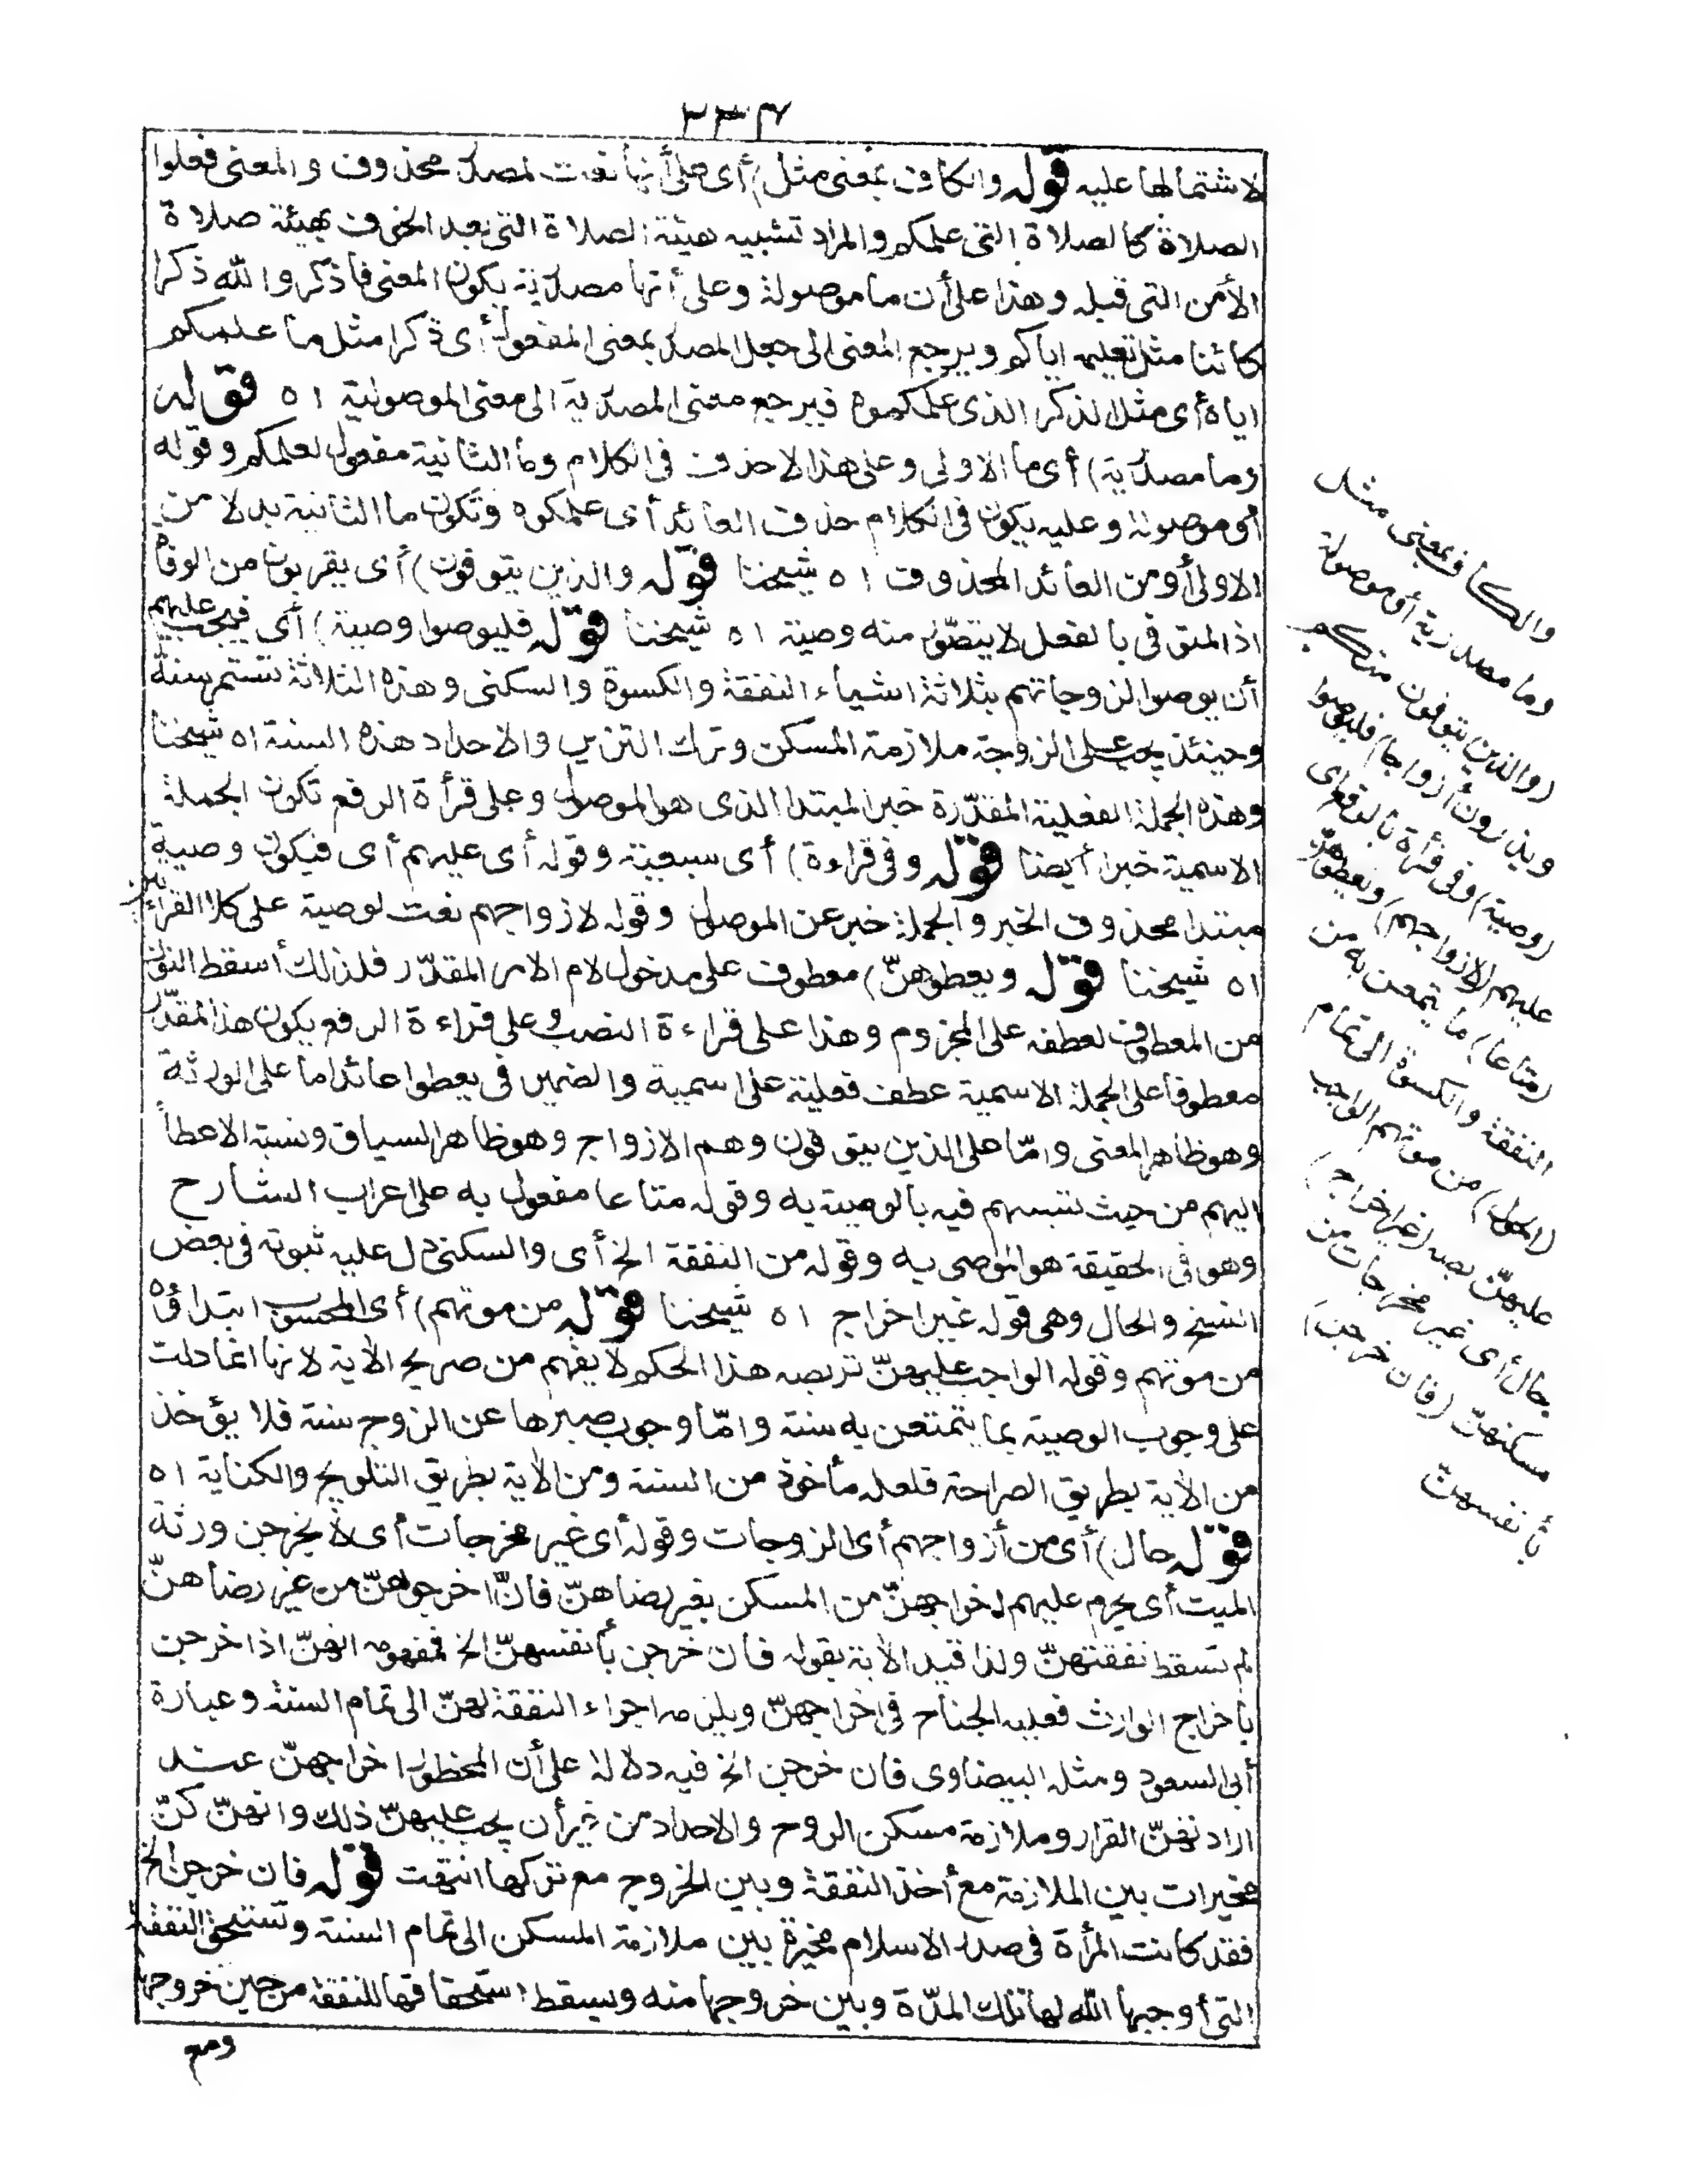 ٢٣٤
لاشتمالها عليه قوله والكاف بمعنى مثل) أى على أنها نعت لمصدر محذوف والمعنى فعلوا
الصلاة كالصلاة التى علمكم والمراد تشبيه هيئة الصلاة التى بعد الخوف بهيئة صلاة
الأمن التى قبله وهذا على أن ما موصولة وعلى أنها مصدرية يكون المعنى فاذكروا الله ذكرا
كائنا مثل تعليمه اياكم ويرجع المعنى الى جعل المصدر بمعنى المفعول أى ذكرا مثل ما علمكم
اياه أى مثل الذكر الذى علمكموه فيرجع معنى المصدرية الى معنى الموصولية اه قوله
وما مصدرية) أى ما الاولى وعلى هذا لا حذف فى الكلام وما الثانية مفعول لعلمكم وقوله
أو موصولة وعليه يكون فى الكلام حذف العائد أى علمكموه وتكون ما الثانية بدلا من
الاولى أو من العائد المحذوف اه شيخنا قوله والذين يتوفون) أى يقربون من الوفاة
اذ المتوفى بالفعل لا يتصور منه وصية اه شيخنا قوله فليوصوا وصية) أى فيجب عليهم
أن يوصوا لزوجاتهم بثلاثة اشياء النفقة والكسوة والسكنى وهذه الثلاثة تستمر سنة
وحينئذ يجب على الزوجة ملازمة المسكن وترك التزين والاحداد هذه السنة اه شيخنا
وهذه الجملة الفعلية المقدّرة خبر المبتدا الذى هو الموصول وعلى قرأة الرفع تكون الجملة
الاسمية خبرا أيضا قوله وفى قراءة) أى سبعية وقوله أى عليهم أى فيكون وصية
مبتدا محذوف الخبر والجملة خبر عن الموصول وقوله لازواجهم نعت لوصية على كلا القراءتين
اه شيخنا قوله ويعطوهنّ) معطوف على مدخول لام الامر المقدّر فلذلك أسقط النون
من المعطوف لعطفه على المجزوم وهذا على قراءة النصب وعلى قراءة الرفع يكون هذا المقدّر
معطوفا على الجملة الاسمية عطف فعلية على اسمية والضمير فى يعطوا عائد اما على الورثة
وهو ظاهر المعنى وامّا على الذين يتوفون وهم الازواج وهو ظاهر السياق ونسبة الاعطاء
اليهم من حيث تسببهم فيه بالوصية به وقوله متاعا مفعول به على اعراب الشارح
وهو فى الحقيقة هو الموصى به وقوله من النفقة الخ أى والسكنى دل عليه ثبوته فى بعض
النسخ والحال وهى قوله غير اخراج اه شيخنا قوله من موتهم) أى المحسوب ابتداؤه
من موتهم وقوله الواجب عليهنّ تربصه هذا الحكم لا يفهم من صريح الآية لانها انما دلت
على وجوب الوصية بما يتمتعن به سنة وامّا وجوب صبرها عن الزوج سنة فلا يؤخذ
من الآية بطريق الصراحة فلعله مأخوذ من السنة ومن الآية بطريق التلويح والكناية اه
قوله حال) أى من أزواجهم أى الزوجات وقوله أى غير مخرجات أى لا يخرجن ورثة
الميت أى يحرم عليهم اخراجهنّ من المسكن بغير رضاهنّ فان اخرجوهنّ من غير رضاهنّ
لم تسقط نفقتهنّ ولذا قيد الآية بقوله فان خرجن بأنفسهنّ الخ فمفهومه انهنّ اذا خرجن
باخراج الوارث فعليه الجناح فى اخراجهنّ ويلزمه اجراء النفقة لهنّ الى تمام السنة وعبارة
أبى السعود ومثله البيضاوى فان خرجن الخ فيه دلالة على أن المحظور اخراجهنّ عند
ارادتهنّ القرار وملازمة مسكن الزوج والاحداد من غير أن يجب عليهنّ ذلك وانهنّ كنّ
مخيرات بين الملازمة مع أخذ النفقة وبين الخروج مع تركها انتهت قوله فان خرجن الخ
فقد كانت المرأة فى صدر الاسلام مخيرة بين ملازمة المسكن الى تمام السنة وتستحق النفقة
التى أوجبها الله لها تلك المدّة وبين خروجها منه ويسقط استحقاقها للنفقة من حين خروجها
ومع
والكاف بمعنى مثل
وما مصدرية أو موصولة
(والذين يتوفون منكم
ويذرون أزواجا) فليوصوا
(وصية) وفى قرأة بالرفع أى
عليهم (لازواجهم) ويعطوهنّ
(متاعا) ما يتمتعن به من
النفقة والكسوة (الى) تمام
(الحول) من موتهم الواجب
عليهنّ تربصه (غير اخراج)
حال أى غير مخرجات من
مسكنهنّ (فان خرجن)
بأنفسهنّ